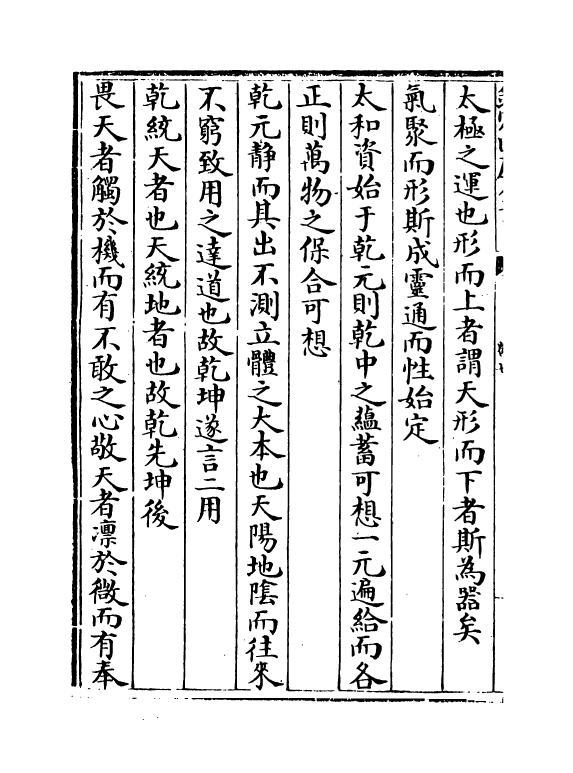 太極之運也形而上者謂天形而下者斯為器矣
氣聚而形斯成靈通而性始定
太和資始于乾元則乾中之蘊蓄可想一元遍給而各
正則萬物之保合可想
乾元静而具出不測立體之大本也天陽地隂而往來
不窮致用之達道也故乾坤遂言二用
乾統天者也天統地者也故乾先坤後
畏天者觸於機而有不敢之心敬天者凛於微而有奉